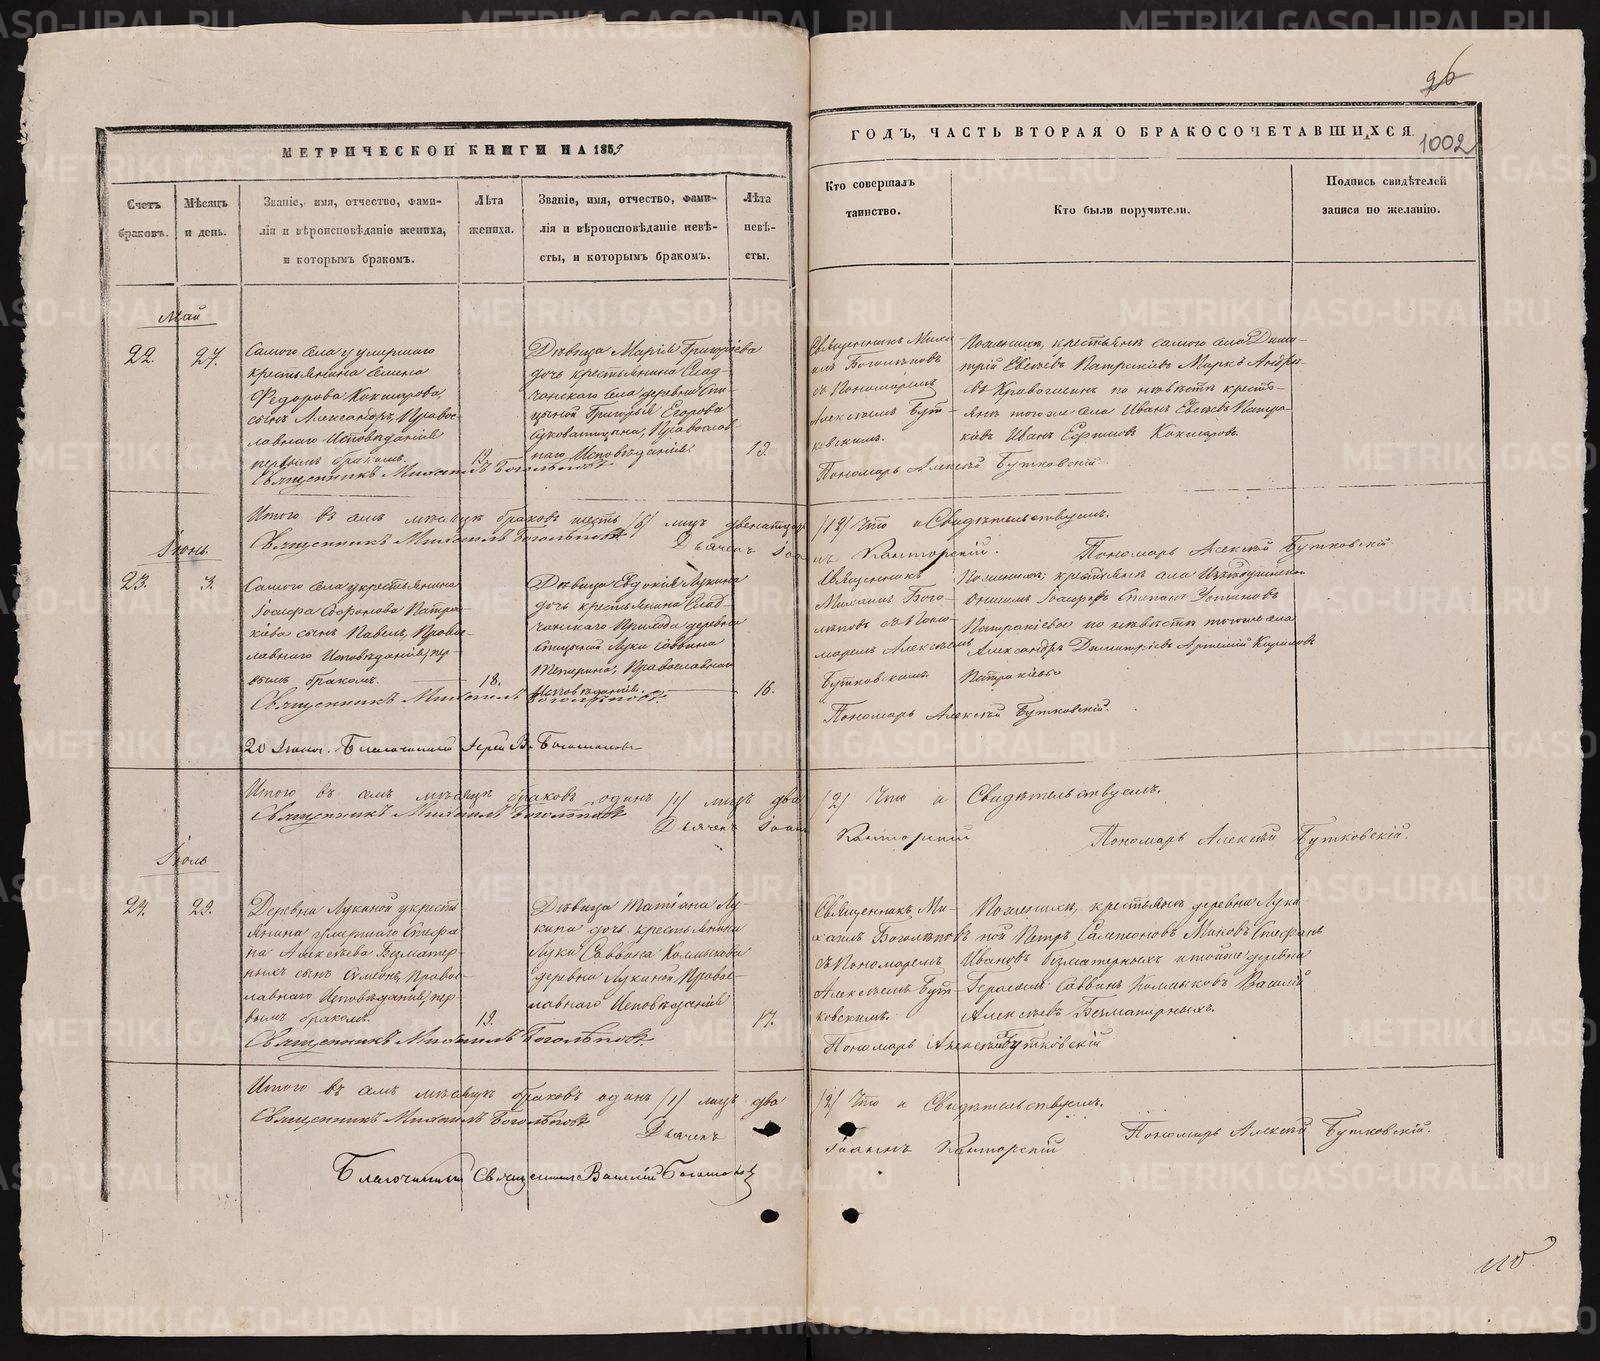 26
МЕТРИЧЕСКОЙ КНИГИ НА 1859
ГОДЪ, ЧАСТЬ ВТОРАЯ О БРАКОСОЧЕТАВШИХСЯ.
1002
Счетъ
браковъ.
Мѣсяцъ
и день.
Званіе, имя, отчество, фами-
лія и вѣроисповѣданіе жениха,
и которымъ бракомъ.
Лѣта
жениха.
Званіе, имя, отчество, фами-
лія и вѣроисповѣданіе невѣ-
сты, и которымъ бракомъ.
Лѣта
невѣ-
сты.
Кто совершалъ
таинство.
Кто были поручители.
Подпись свидѣтелей
записи по желанію.
Май
22.
27.
Самого села у умершаго
крестьянина
Федорова Кокшарова,
сынъ Александръ, Правос-
лавнаго Исповѣданія
первымъ бракомъ.
19.
Дѣвица Марія Григорьева
дочь крестьянина Слад-
чанскаго села деревни
Григорья Егорова
Православ-
наго Исповѣданія.
19.
Священникъ Михаилъ Боголѣповъ
Священникъ Миха-
илъ Боголѣповъ
съ Пономаремъ
Алексѣемъ Бут-
ковскимъ.
По женихѣ, крестьяне самого села Дими-
трій Евсеевъ Патракіевъ Марко Андре-
евъ по невѣстѣ кресть-
яне тогоже села Иванъ Евсеевъ Патра-
кіевъ Иванъ Ефимовъ Кокшаровъ.
Пономарь Алексѣй Бутковскій
Итого въ семъ мѣсяцѣ браковъ шесть /6/ лицъ двенатцать /12/ Что и Свидѣтельствуемъ.
Священникъ Михаилъ Боголѣповъ
Дьячекъ Іоаннъ Канторскій.
Пономарь Алексѣй Бутковскій
Іюнь.
23.
3.
Самого села у крестьянина
Іоасафа Софронова Патра-
кіева сынъ Павелъ, Правос-
лавнаго Исповѣданія, пер-
вымъ бракомъ.
18.
Дѣвица Евдокія Лукина
дочь крестьянина Слад-
чанскаго Прихода деревни
Луки Саввина
Православнаго
Исповѣданія.
16.
Священникъ Михаилъ Боголѣповъ.
Священникъ
Михаилъ Бого-
лѣповъ съ Поно-
маремъ Алексѣемъ
Бутковскимъ.
По женихѣ, крестьяне села
Онисимъ Іоасафовъ Степанъ Устиновъ
Патракіевы по невѣстѣ тогоже села
Александръ Димитріевъ Артемій Кириловъ
Патракіевы
Пономарь Алексѣй Бутковскій.
20 Іюня. Благочинный Іерей В.
Итого въ семъ мѣсяцѣ браковъ одинъ /1/ лицъ два /2/ Что и Свидѣтельствуемъ.
Священникъ Михаилъ Боголѣповъ
Дьячекъ Іоаннъ Канторскій
Пономарь Алексѣй Бутковскій.
Іюль
24.
29.
Деревни Лукиной у кресть-
янина умершаго Стефа-
на Алексѣева Безматер-
ныхъ сынъ Симеонъ, Правос-
лавнаго Исповѣданія, пер-
вымъ бракомъ.
19.
Дѣвица Татіана Лу-
кина дочь крестьянина
Луки Саввина
деревни Лукиной Правос-
лавнаго Исповѣданія
17.
Священникъ Михаилъ Боголѣповъ.
Священникъ Ми-
хаилъ Боголѣповъ
съ Пономаремъ
Алексѣемъ Бут-
ковскимъ.
По женихѣ, крестьяне деревни Луки-
ной Петръ Сампсоновъ Стефанъ
Ивановъ Безматерныхъ и тойже деревни
Герасимъ Саввинъ Василій
Алексѣевъ Безматерныхъ.
Пономарь Алексѣй Бутковскій
Итого въ семъ мѣсяцѣ браковъ одинъ /1/ лицъ два /2/ Что и Свидѣтельствуемъ.
Священникъ Михаилъ Боголѣповъ
Дьячекъ Іоаннъ Канторскій
Пономарь Алексѣй Бутковскій.
Благочинный Священникъ Василій
METRIKI.GASO-URAL.RU